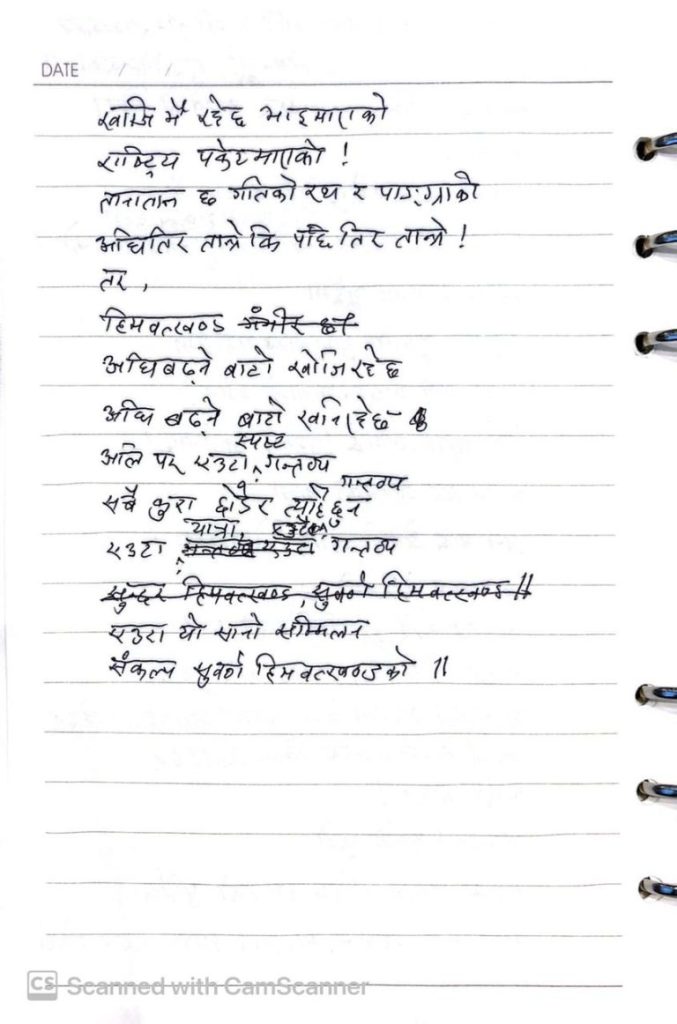 DATE / /
खाँज मै रहेछ भाइमाराको
राष्ट्रिय पकेटमाराको !
तानातान छ गतिको रथ र पाङ्ग्राको
अघितिर तान्ने कि पछि तिर तान्ने !
तर ,
हिमवतखण्ड गंभीर छ
अघि बढ्ने बाटो खोजि रहेछ
अघि बढ्ने बाटो खनिरहेछ
स्पष्ट
अलि पर एउटा गन्तव्य
गन्तव्य
सबै कुरा छोडेर त्यहि छुन
यात्रा, एउटै
एउटा एउटा गन्तव्य
सुन्दर हिमवतखण्ड, सुवर्ण हिमवतखण्ड ।।
एउटा यो सानो सम्मिलन
संकल्प सुवर्ण हिमवतखण्डको ।।
CS Scanned with CamScanner